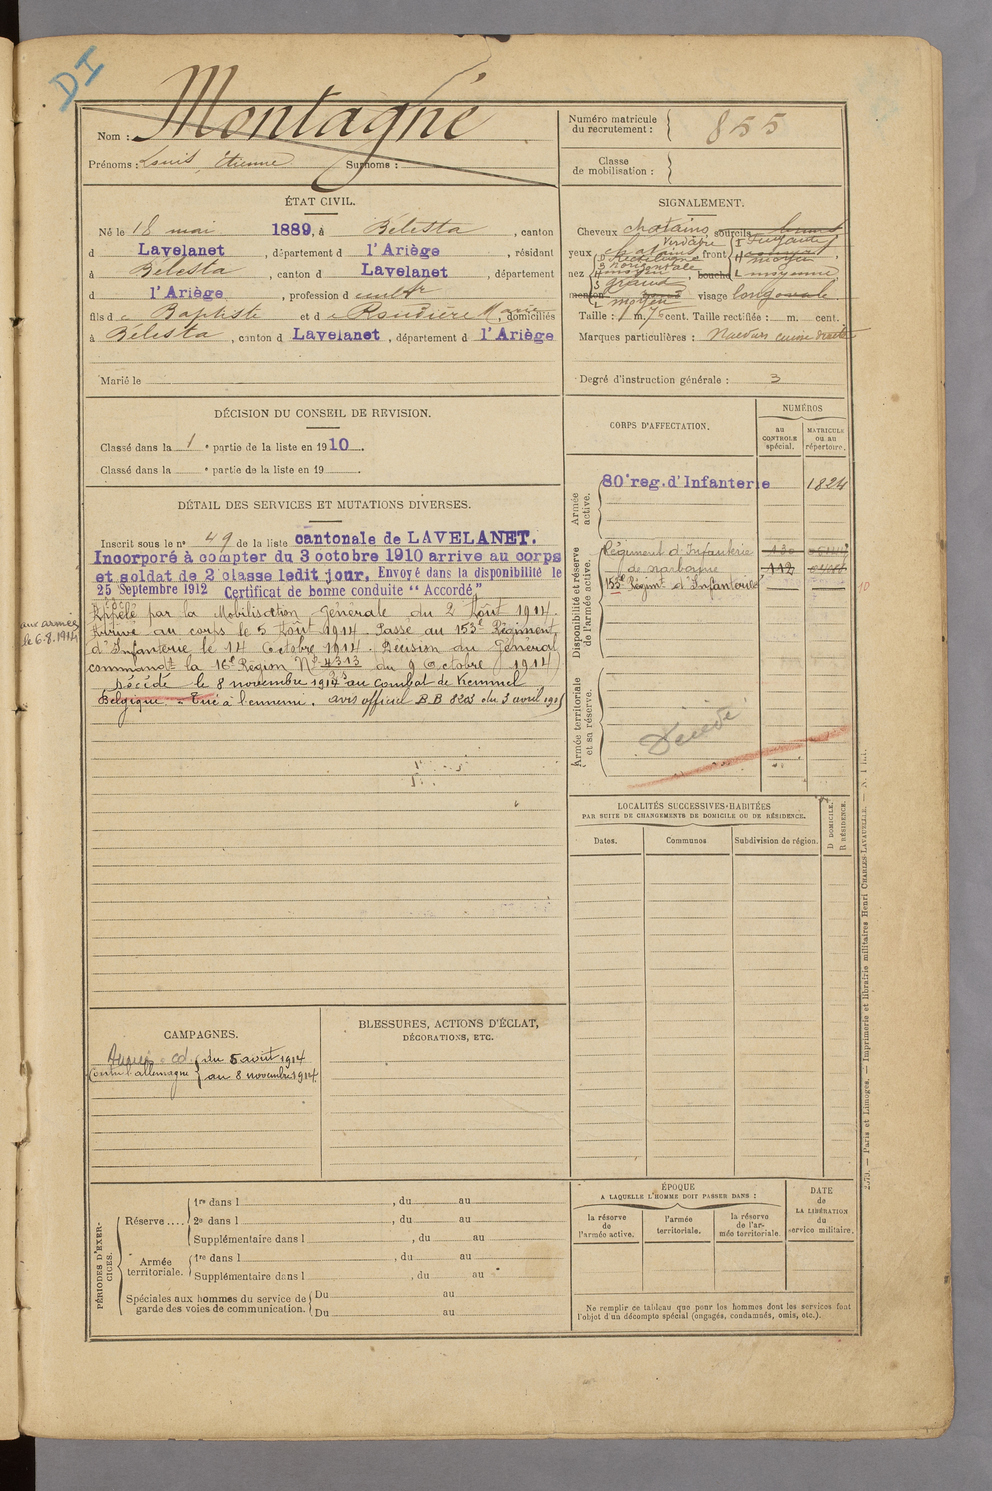 DI
Nom : Montagné
Prénoms : Louis, Etienne Surnoms :
Numéro matricule du recrutement : 855
Classe de mobilisation :
ÉTAT CIVIL.
Né le 18 mai 1889, à Bélesta, canton
d Lavelanet, département d l'Ariège, résidant
à Bélesta, canton d Lavelanet, département
d l'Ariège, profession d cultr
fils de Baptiste et de Roudière Marie, domiciliés
à Bélesta, canton d Lavelanet, département d l'Ariège
Marié le
SIGNALEMENT.
Cheveux chatains sourcils
yeux chatains verdatre front I Fuyante
D Rectiligne H moyen
nez B horizontale , bouche L moyenne
H moyen
S grand
menton L moyen visage long ovale
Taille : 1 m. 76 cent. Taille rectifiée : m. cent.
Marques particulières : Naevus cuisse droite
Degré d'instruction générale : 3
DÉCISION DU CONSEIL DE REVISION.
Classé dans la 1e partie de la liste en 1910.
Classé dans la e partie de la liste en 19 .
DÉTAIL DES SERVICES ET MUTATIONS DIVERSES.
Inscrit sous le n° 49 de la liste cantonale de LAVELANET.
Incorporé à compter du 3 octobre 1910 arrive au corps
et soldat de 2e classe ledit jour. Envoyé dans la disponibilité le
25 Septembre 1912 Certificat de bonne conduite "Accordé"
Rappelé par la Mobilisation Générale du 2 Août 1914.
aux armées
le 6.8.1914
Arrivé au corps le 5 Août 1914. Passé au 153e Régiment
d'Infanterie le 14 Octobre 1914. (Décision du Général
commandt la 16e Région N° 4313 du 9 Octobre 1914)
Décédé le 8 novembre 1914 au combat de Kemmel
Belgique. - Tué à l'ennemi. avis officiel B.B 8203 du 3 avril 1915
CORPS D'AFFECTATION.
NUMÉROS
au CONTROLE spécial.
MATRICULE ou au répertoire.
Armée active.
80e reg. d'Infanterie 1824
Disponibilité et réserve de l'armée active.
Régiment d'Infanterie
de Narbonne 112
153e Régimt d'Infanterie
Armée territoriale et sa réserve.
Décédé
LOCALITÉS SUCCESSIVES HABITÉES
PAR SUITE DE CHANGEMENTS DE DOMICILE OU DE RÉSIDENCE.
Dates.
Communes
Subdivision de région.
D DOMICILE.
R RÉSIDENCE.
CAMPAGNES.
Contre l'allemagne
du 5 août 1914
au 8 novembre 1914.
BLESSURES, ACTIONS D'ÉCLAT,
DÉCORATIONS, ETC.
PÉRIODES D'EXERCICES.
Réserve ....
1re dans l , du au
2e dans l , du au
Supplémentaire dans l , du au
Armée territoriale.
1re dans l , du au
Supplémentaire dans l , du au
Spéciales aux hommes du service de garde des voies de communication.
Du au
Du au
ÉPOQUE
A LAQUELLE L'HOMME DOIT PASSER DANS :
la réserve de l'armée active.
l'armée territoriale.
la réserve de l'armée territoriale.
DATE de LA LIBÉRATION du service militaire.
Ne remplir ce tableau que pour les hommes dont les services font
l'objet d'un décompte spécial (engagés, condamnés, omis, etc.).
Paris et Limoges. — Imprimerie et librairie militaires Henri CHARLES-LAVAUZELLE.